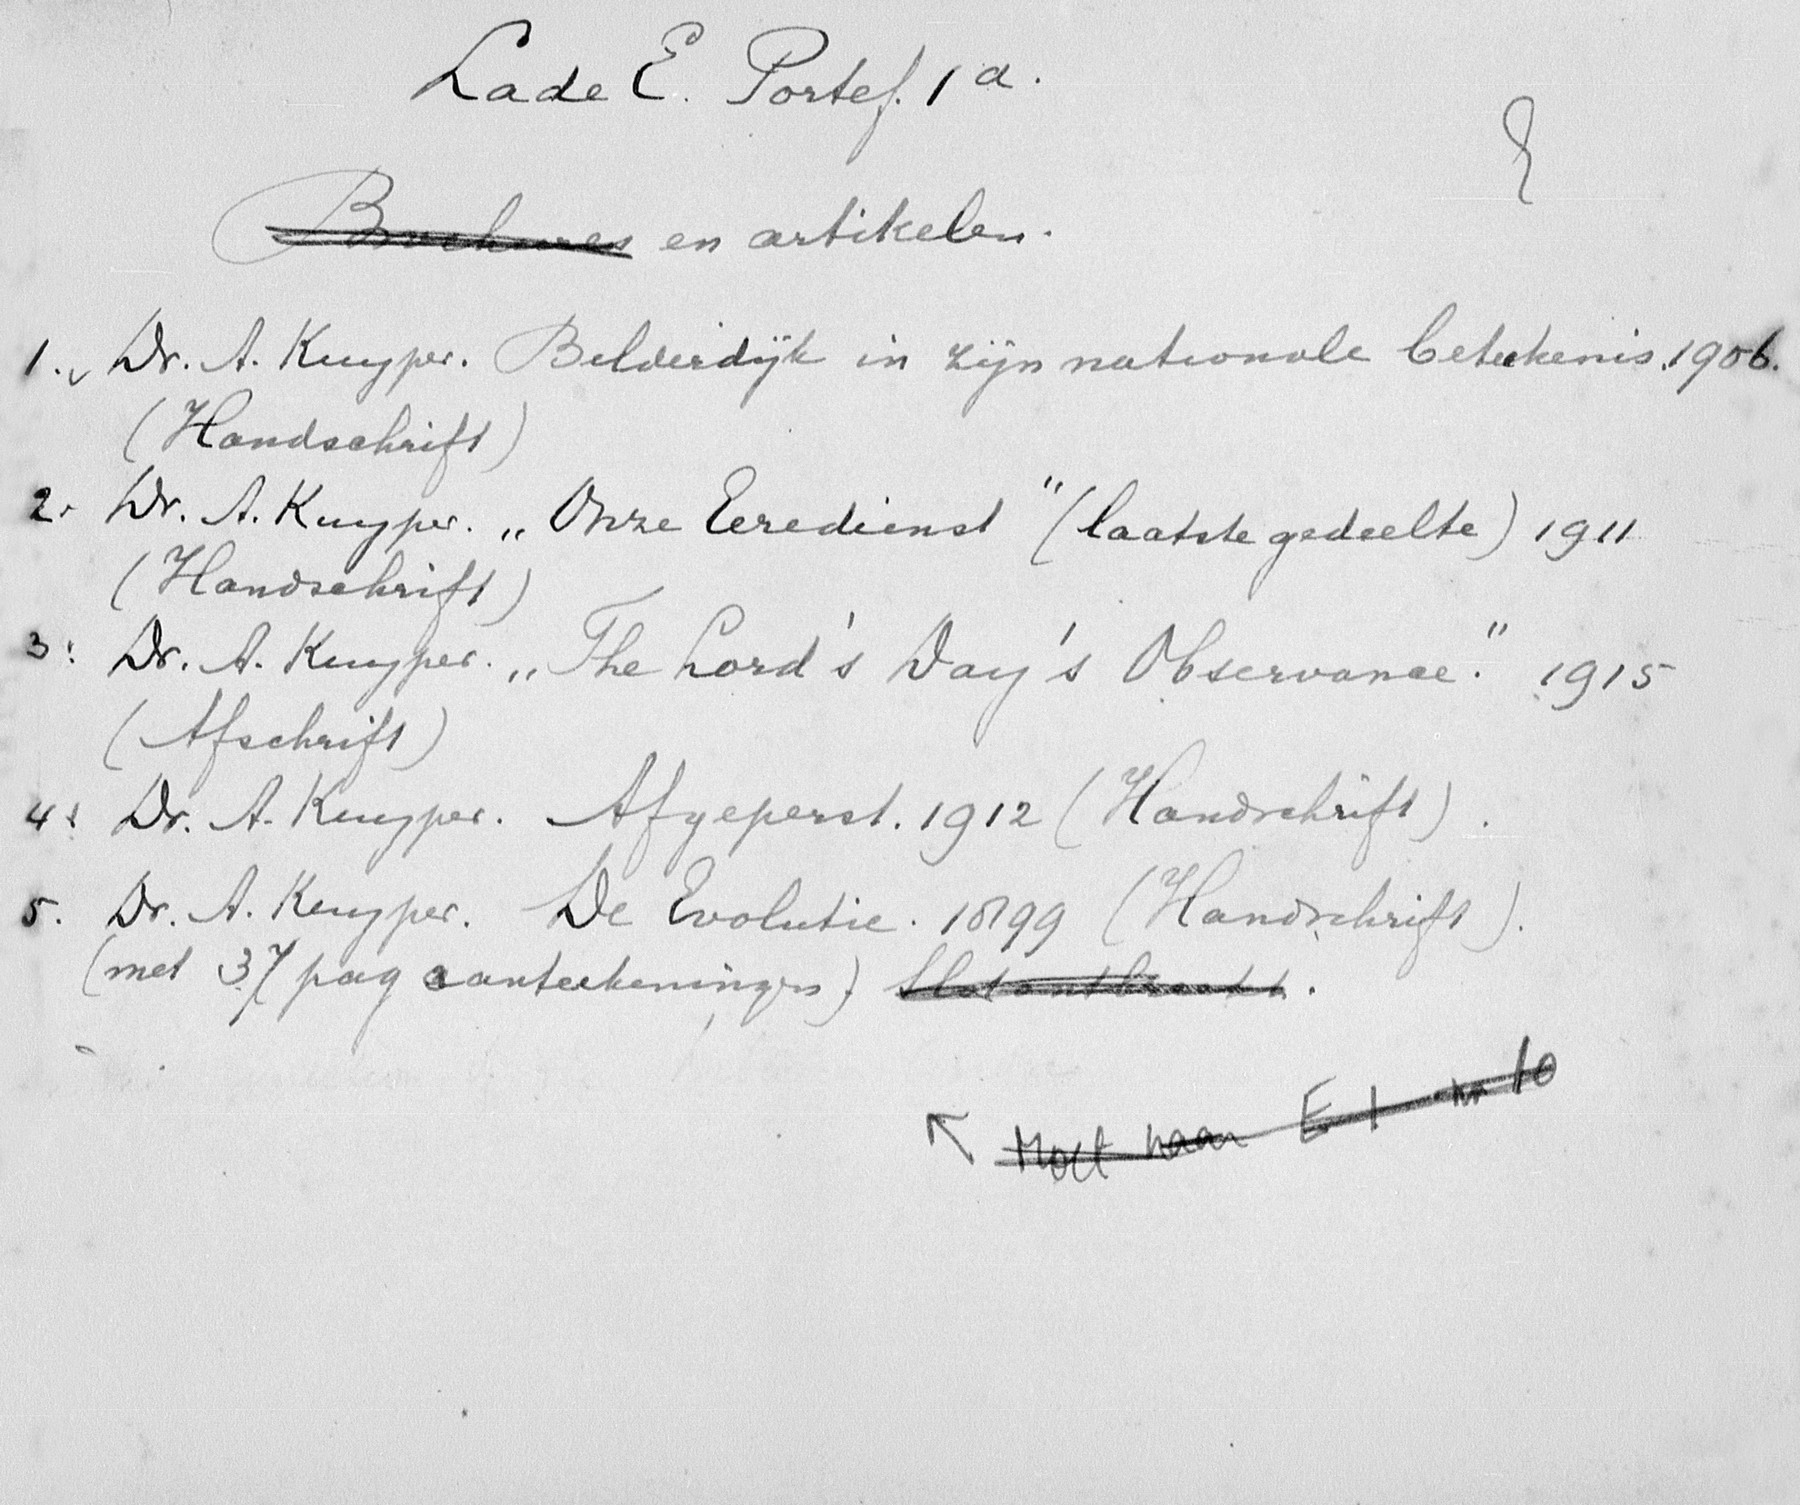 Lade E. Portef. 1a.
E
Brochures en artikelen.
1. Dr. A. Kuyper. Bilderdijk in zijn nationale beteekenis. 1906.
(Handschrift)
2. Dr. A. Kuyper. „Onze Eeredienst" (laatste gedeelte) 1911
(Handschrift)
3. Dr. A. Kuyper. „The Lord's Day's Observance." 1915
(Afschrift)
4. Dr. A. Kuyper. Afgeperst. 1912 (Handschrift).
5. Dr. A. Kuyper. De Evolutie. 1899 (Handschrift).
(met 37 pag aanteekeningen) Slot ontbreekt.
Moet naar E 1 nr 10